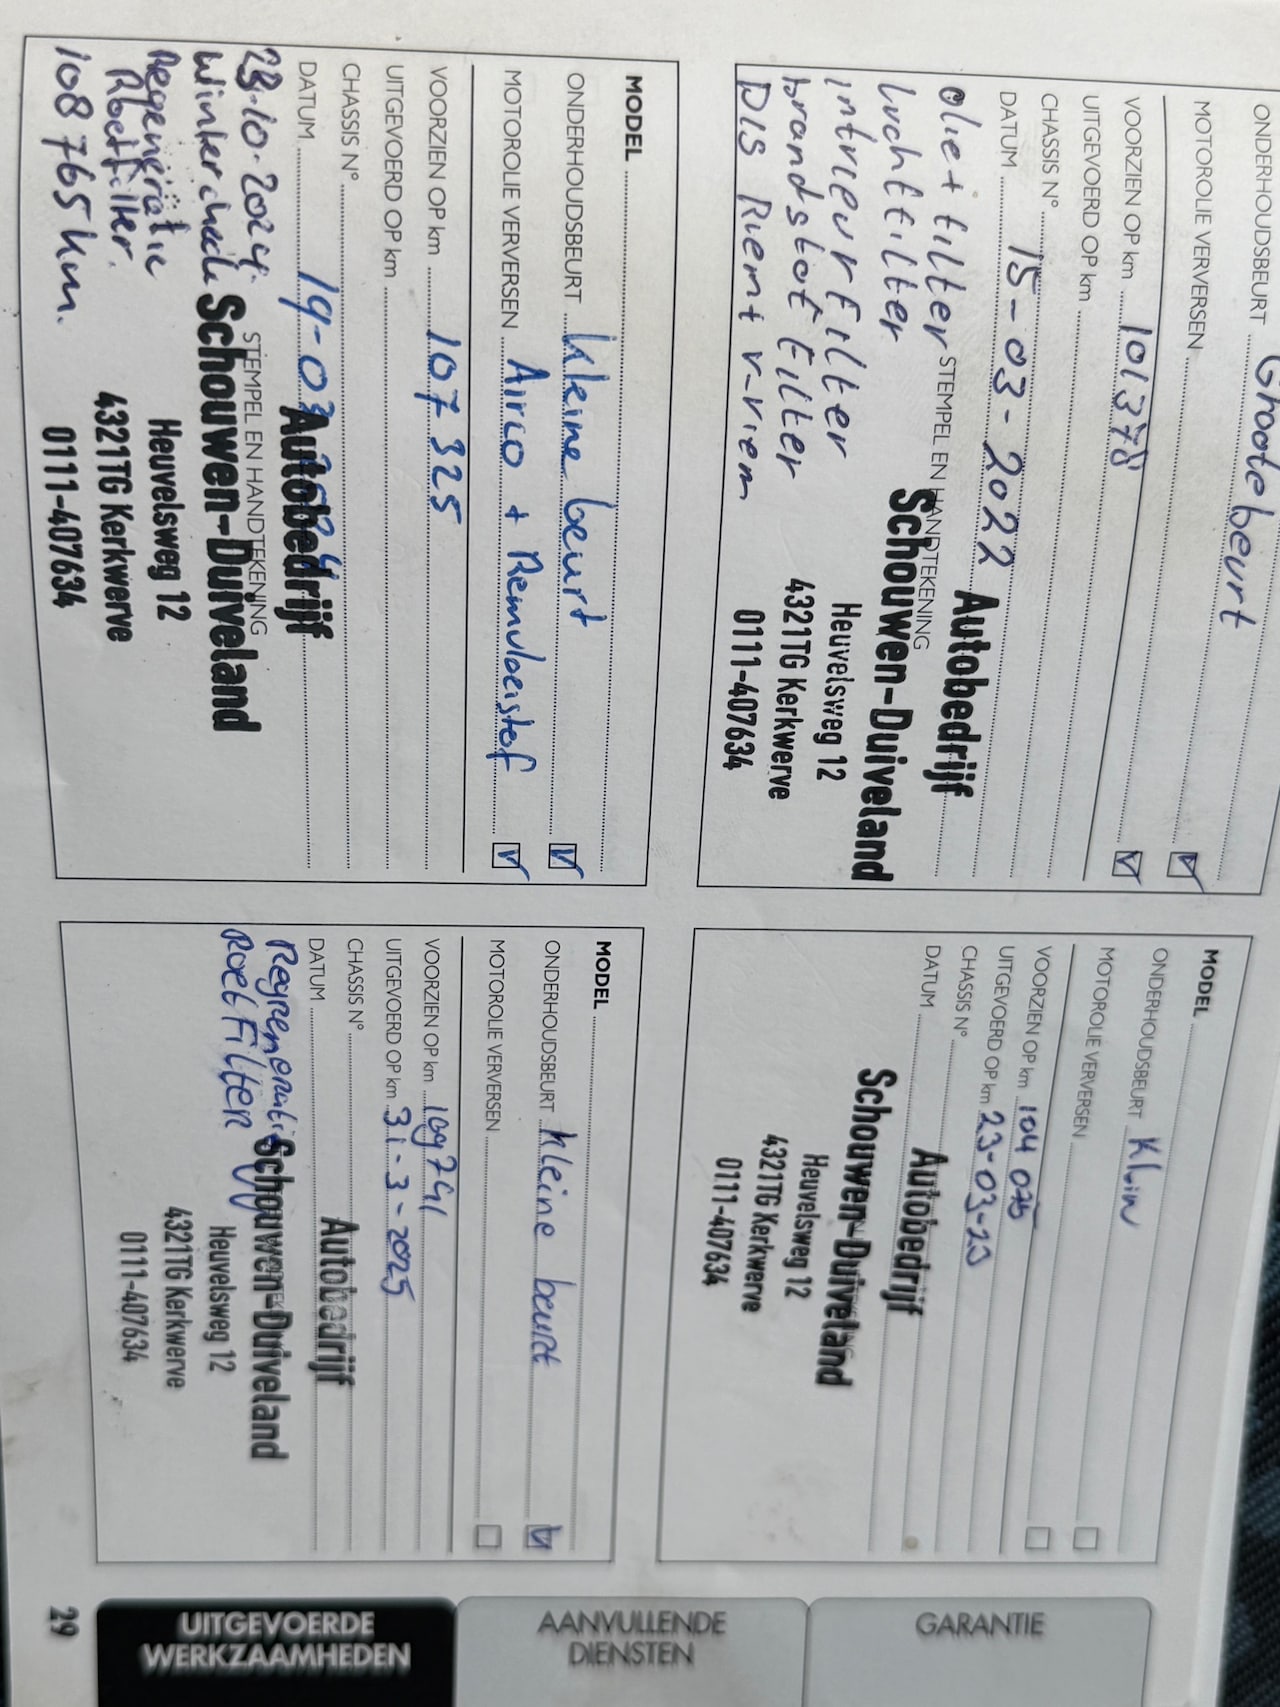 ONDERHOUDSBEURT Groote beurt
MOTOROLIE VERVERSEN
VOORZIEN OP km 101378
UITGEVOERD OP km
CHASSIS N°
DATUM 15-03-2022
olie + filter
luchtfilter
intrieur filter
brandstof filter
DIS Riem + v-riem
STEMPEL EN HANDTEKENING
Autobedrijf
Schouwen-Duiveland
Heuvelsweg 12
4321TG Kerkwerve
0111-407634
MODEL
ONDERHOUDSBEURT Klein
MOTOROLIE VERVERSEN
VOORZIEN OP km 104 075
UITGEVOERD OP km 23-03-23
CHASSIS N°
DATUM
Autobedrijf
Schouwen-Duiveland
Heuvelsweg 12
4321TG Kerkwerve
0111-407634
MODEL
ONDERHOUDSBEURT kleine beurt
MOTOROLIE VERVERSEN Airco + Remvloeistof
VOORZIEN OP km 107325
UITGEVOERD OP km
CHASSIS N°
DATUM 19-03-2024
STEMPEL EN HANDTEKENING
Autobedrijf
Schouwen-Duiveland
Heuvelsweg 12
4321TG Kerkwerve
0111-407634
28-10-2024
Winter check
Regeneratie
Roetfilter.
108765 km.
MODEL
ONDERHOUDSBEURT kleine beurt
MOTOROLIE VERVERSEN
VOORZIEN OP km 109741
UITGEVOERD OP km 31-3-2025
CHASSIS N°
DATUM
Roetfilter
Autobedrijf
Schouwen-Duiveland
Heuvelsweg 12
4321TG Kerkwerve
0111-407634
GARANTIE
AANVULLENDE
DIENSTEN
UITGEVOERDE
WERKZAAMHEDEN
29